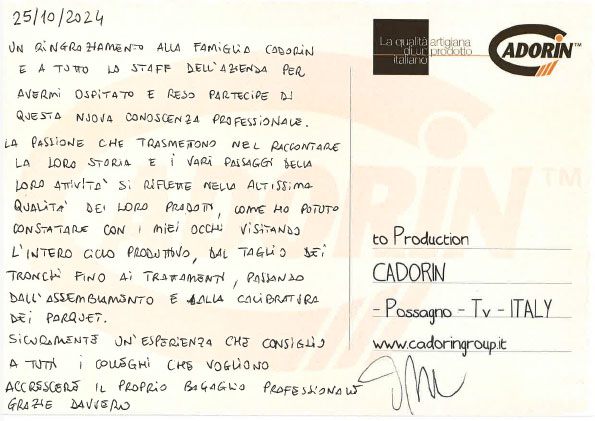 25/10/2024
UN RINGRAZIAMENTO ALLA FAMIGLIA CADORIN
E A TUTTO LO STAFF DELL'AZIENDA PER
AVERMI OSPITATO E RESO PARTECIPE DI
QUESTA NUOVA CONOSCENZA PROFESSIONALE.
LA PASSIONE CHE TRASMETTONO NEL RACCONTARE
LA LORO STORIA E I VARI PASSAGGI DELLA
LORO ATTIVITA' SI RIFLETTE NELLA ALTISSIMA
QUALITA' DEI LORO PRODOTTI, COME HO POTUTO
CONSTATARE CON I MIEI OCCHI VISITANDO
L'INTERO CICLO PRODUTTIVO, DAL TAGLIO DEI
TRONCHI FINO AI TRATTAMENTI, PASSANDO
DALL'ASSEMBLAMENTO E DALLA CALIBRATURA
DEI PARQUET.
SICURAMENTE UN'ESPERIENZA CHE CONSIGLIO
A TUTTI I COLLEGHI CHE VOGLIONO
ACCRESCERE IL PROPRIO BAGAGLIO PROFESSIONALE
GRAZIE DAVVERO
La qualità artigiana
di un prodotto
italiano
CADORIN™
to Production
CADORIN
- Possagno - Tv - ITALY
www.cadoringroup.it
CADORIN™